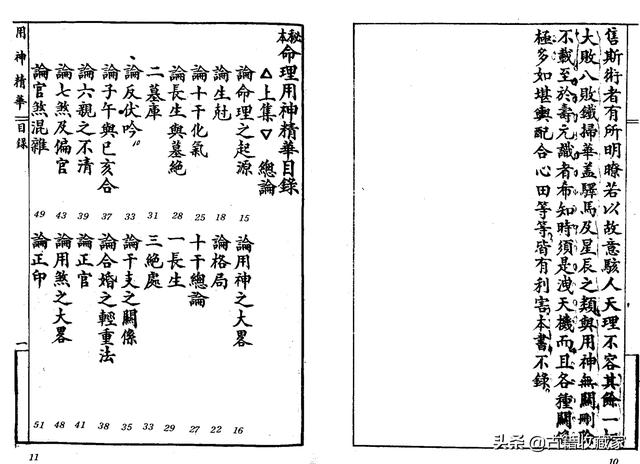 售斯術者有所明瞭若以故意駭人天理不容其餘一切
大敗八敗鐵掃華盖驛馬及星辰之類與用神無關刪除
不載至於壽元識者布知時須是洩天機而且各種關係
極多如堪輿配合心田等等皆有利害本書不錄。
10
秘本命理用神精華目錄
△上集▽ 總論
論命理之起源 15 論用神之大畧 16
論生尅 18 論格局 22
論十干化氣 25 十干總論 27
論長生與墓絕 28 一長生 29
二墓庫 31 三絕處 33
論反伏吟 33 論干支之關係 35
論子午與巳亥合 37 論合婚之輕重法 38
論六親之不清 39 論正官 41
論七煞及偏官 43 論用煞之大畧 48
論官煞混雜 49 論正印 51
用神精華 目錄 一
11
头条 @古籍收藏家